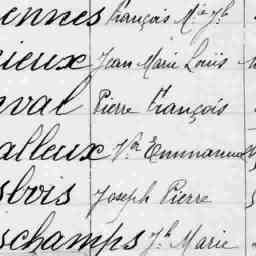 ennes François M.ie J.h
ieux Jean Marie Louis
val Pierre François
alleux V.or Emmanuel
sbois Joseph Pierre
schamps J.h Marie